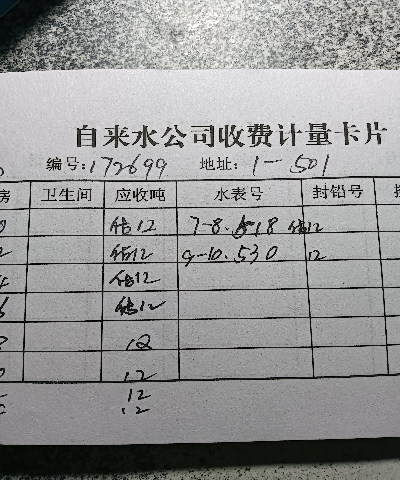 自来水公司收费计量卡片
编号:172699 地址:1-501
房 卫生间 应收吨 水表号 封铅号
0 估12 7-8.518 估12
2 估12 9-10.530 12
4 估12
6 估12
8 12
0 12
12
12